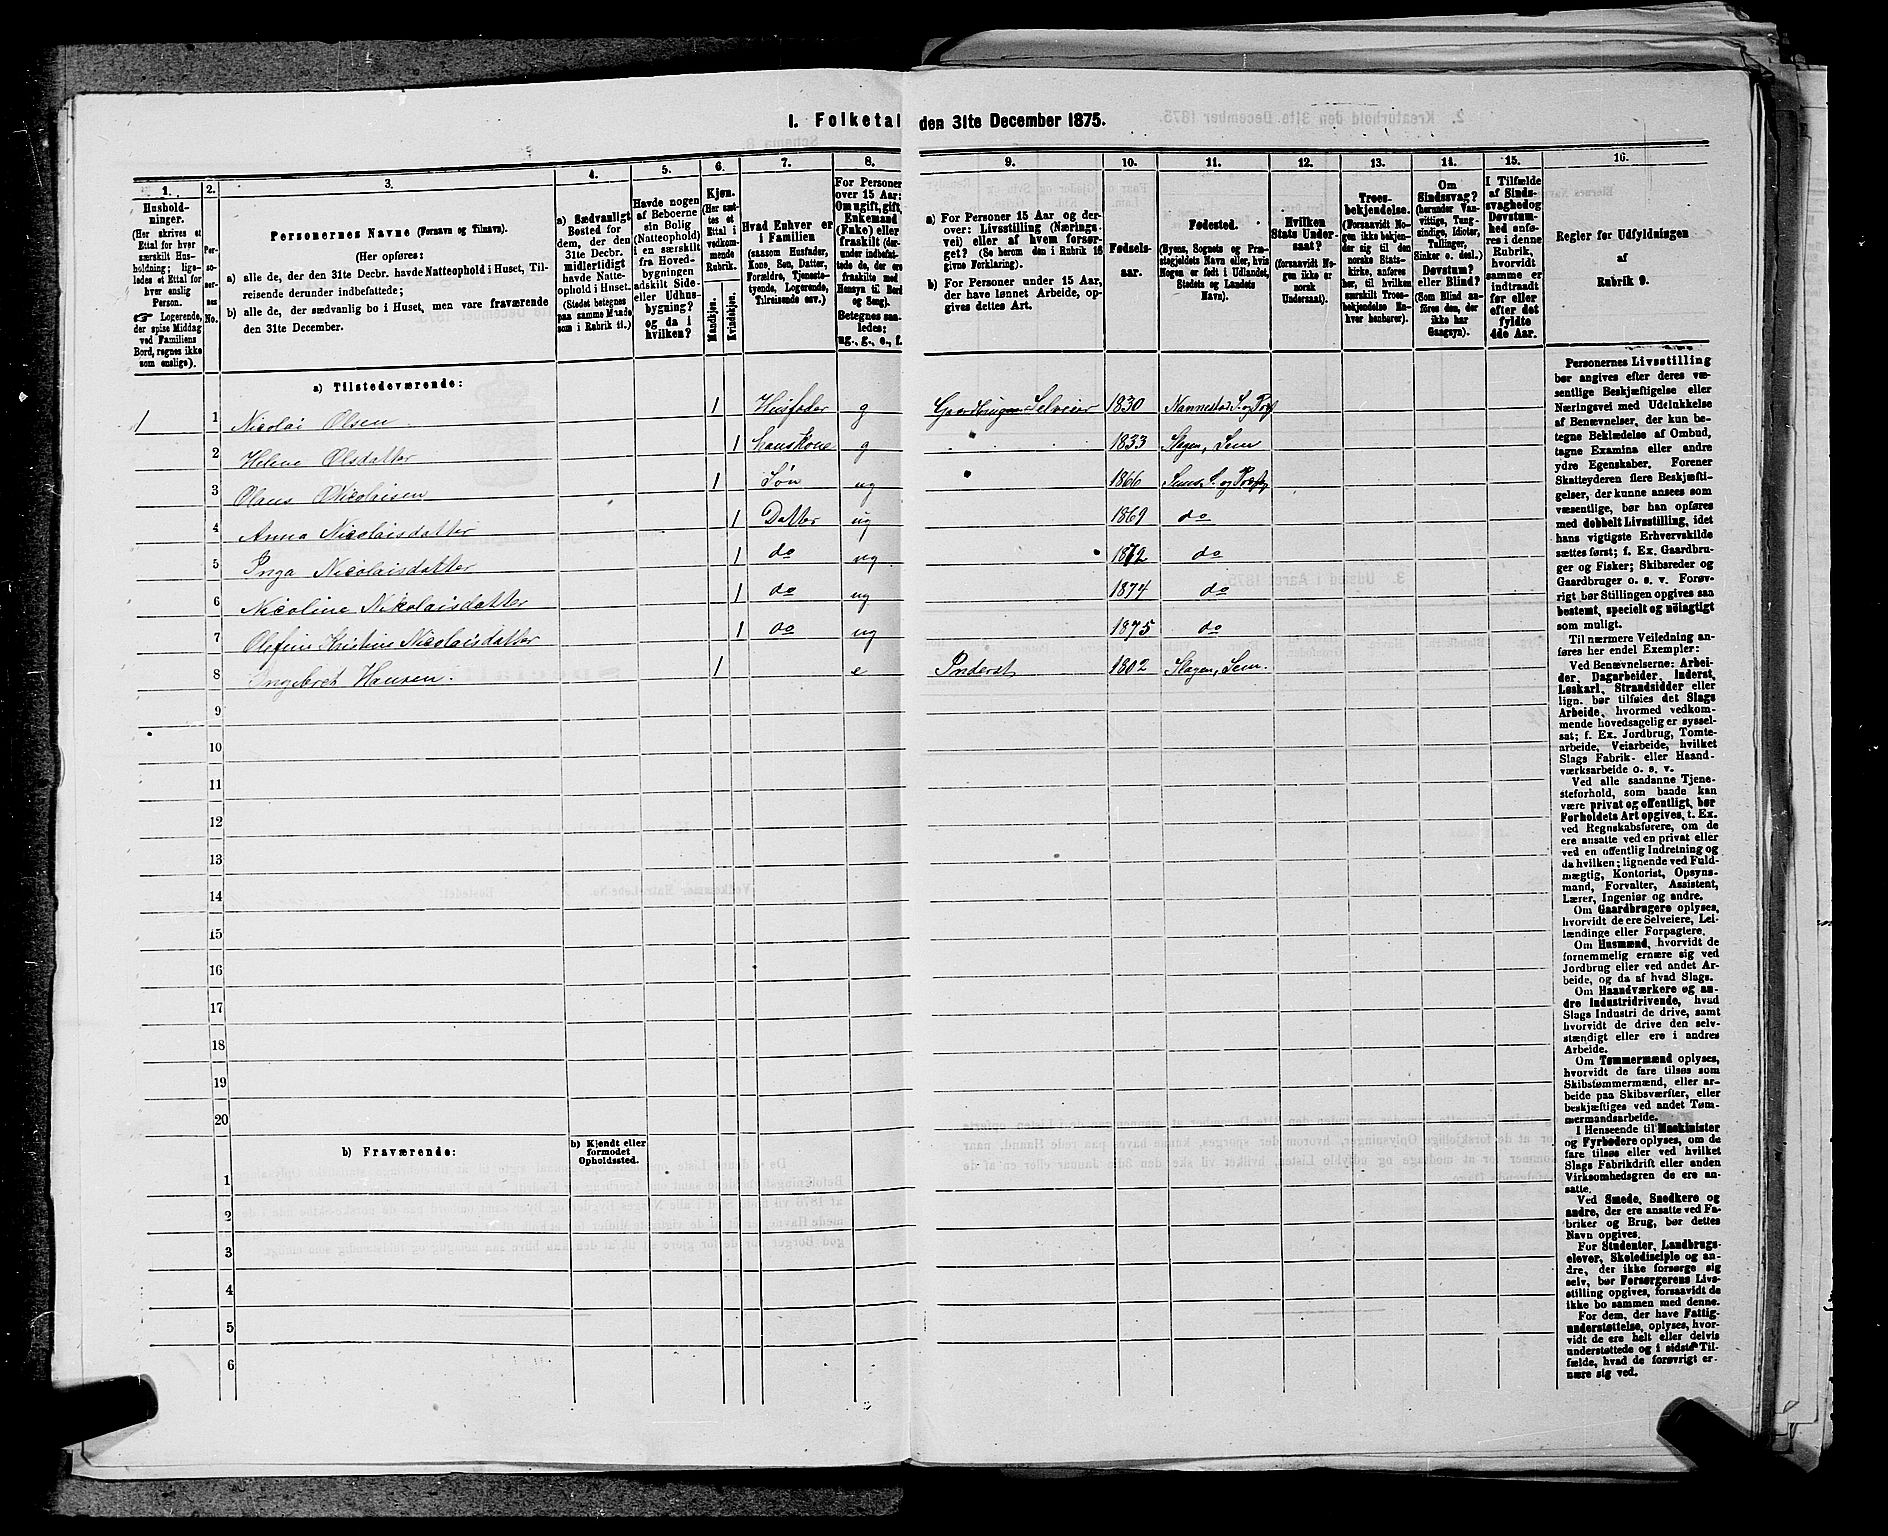 1. Folketal den 31te December 1875.
1.
2.
3.
4.
5.
6.
7.
8.
9.
10.
11.
12.
13.
14.
15.
16.
Husholdninger.
(Her skrives et Ettal for hver særskilt Husholdning; ligeledes et Ettal for hver enslig Person.
☞ Logerende, der spise Middag ved Familiens Bord, regnes ikke som enslige).
Personernes No.
Personernes Navne (Fornavn og Tilnavn).
(Her opføres:
a) alle de, der den 31te Decbr. havde Natteophold i Huset, Tilreisende derunder indbefattede;
b) alle de, der sædvanlig bo i Huset, men vare fraværende den 31te December.
a) Sædvanligt Bosted for dem, der den 31te Decbr. midlertidigt havde Natteophold i Huset. (Stedet betegnes paa samme Maade som i Rubrik 11.)
Havde nogen af Beboerne sin Bolig (Natteophold) i en særskilt fra Hovedbygningen adskilt Side- eller Udhusbygning? og da i hvilken?
Kjøn.
(Her sættes et Ettal i vedkommende Rubrik.
Mandkjøn.
Kvindekjøn.
Hvad Enhver er i Familien
(saasom Husfader, Kone, Søn, Datter, Forældre, Tjenestetyende, Logerende, Tilreisende osv.)
For Personer over 15 Aar: Om ugift, gift, Enkemand (Enke) eller fraskilt (derunder indbefattede de, der ere fraskilte med Hensyn til Bord og Seng). Betegnes saaledes: ug., g., e., f.
a) For Personer 15 Aar og derover: Livsstilling (Næringsvei) eller af hvem forsørget? (Se herom den i Rubrik 16 givne Forklaring).
b) For Personer under 15 Aar, der have lønnet Arbeide, opgives dettes Art.
Fødselsaar.
Fødested.
(Byens, Sognets og Præstegjeldets Navn eller, hvis Nogen er født i Udlandet, Stedets og Landets Navn).
Hvilken Stats Undersaat?
(forsaavidt Nogen ikke er norsk Undersaat).
Troesbekjendelse.
(Forsaavidt Nogen ikke bekjender sig til den norske Statskirke, anføres her, til hvilken særskilt Troesbekjendelse Enhver henhører).
Om Sindssvag? (herunder Vanvittige, Tungsindige, Idioter, Tullinger, Sinker o. desl.) Døvstum? eller Blind? (Som Blind anføres den, der ikke har Gangsyn).
I Tilfælde af Sindssvaghed og Døvstumhed anføres i denne Rubrik, hvorvidt samme er indtraadt før eller efter det fyldte 4de Aar.
Regler for Udfyldningen
af
Rubrik 9.
a) Tilstedeværende:
1 1 Nicolai Olsen 1 Husfader g Gaardbruger Selveier 1830 Nannestad S. og Præst
2 Helene Olsdatter 1 hans Kone g 1833 Slagen, Sem
3 Olaus Nicolaisen 1 Søn ug 1866 Sems S. og Præstg
4 Anna Nicolaisdatter 1 Datter ug 1869 do
5 Inga Nicolaisdatter 1 do ug 1872 do
6 Nicoline Nikolaisdatter 1 do ug 1874 do
7 Olefine Kristine Nicolaisdatter 1 do ug 1875 do
8 Ingebret Hansen. 1 e Inderst 1802 Slagen, Sem.
9
10
11
12
13
14
15
16
17
18
19
20
b) Fraværende:
b) Kjendt eller formodet Opholdssted.
1
2
3
4
5
6
Personernes Livsstilling
bør angives efter deres væ-
sentlige Beskjæftigelse eller
Næringsvei med Udelukkelse
af Benævnelser, der kun be-
tegne Beklædelse af Ombud,
tagne Examina eller andre
ydre Egenskaber. Forener
Skatteyderen flere Beskjæfti-
gelser, der kunne ansees som
væsentlige, bør han opføres
med dobbelt Livsstilling, idet
hans vigtigste Erhvervskilde
sættes først; f. Ex. Gaardbru-
ger og Fisker; Skibsreder og
Gaardbruger o. s. v. Forøv-
rigt bør Stillingen opgives saa
bestemt, specielt og nöiagtigt
som muligt.
Til nærmere Veiledning an-
føres her endel Exempler:
Ved Benævnelserne: Arbei-
der, Dagarbeider, Inderst,
Løskarl, Strandsidder eller
lign. bør tilføies det Slags
Arbeide, hvormed vedkom-
mende hovedsagelig er syssel-
sat; f. Ex. Jordbrug, Tomte-
arbeide, Veiarbeide, hvilket
Slags Fabrik- eller Haand-
værksarbeide o. s. v.
Ved alle saadanne Tjene-
steforhold, som baade kan
være privat og offentligt, bør
Forholdets Art opgives, t. Ex.
ved Regnskabsførere, om de
ere ansatte ved en privat eller
ved en offentlig Indretning og
da hvilken; lignende ved Fuld-
mægtig, Kontorist, Opsyns-
mand, Forvalter, Assistent,
Lærer, Ingeniør og andre.
Om Gaardbrugere oplyses,
hvorvidt de ere Selveiere, Lei-
lændinge eller Forpagtere.
Om Husmænd, hvorvidt de
fornemmelig ernære sig ved
Jordbrug eller ved andet Ar-
beide, og da af hvad Slags.
Om Haandværkere og an-
dre Industridrivende, hvad
Slags Industri de drive, samt
hvorvidt de drive den selv-
stændigt eller ere i andres
Arbeide.
Om Tømmermænd oplyses,
hvorvidt de fare tilsøs som
Skibstømmermænd, eller ar-
beide paa Skibsværfter, eller
beskjæftiges ved andet Tøm-
mermandsarbeide.
I Henseende til Maskinister
og Fyrbødere oplyses, om de
fare tilsøs eller ved hvilket
Slags Fabrikdrift eller anden
Virksomhedsgren de ere an-
satte.
Ved Smede, Snedkere og
andre, der ere ansatte ved Fa-
briker og Brug, bør dettes
Navn opgives.
For Studenter, Landbrugs-
elever, Skoledisciple og an-
dre, der ikke forsørge sig
selv, bør Forsørgerens Livs-
stilling opgives, forsaavidt de
ikke bo sammen med denne.
For dem, der have Fattig-
understøttelse, oplyses, hvor-
vidt de ere helt eller delvis
understøttede og i sidste Til-
fælde, hvad de forøvrigt er-
nære sig ved.